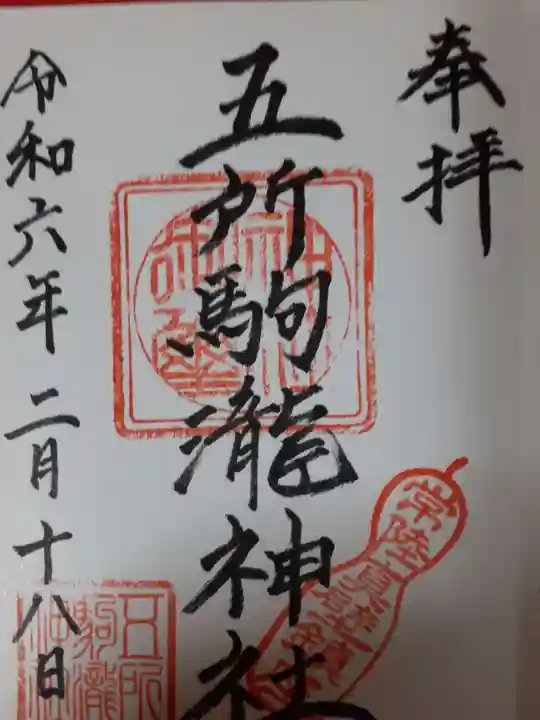 奉拝
五所駒瀧神社
令和六年二月十八日
常陸
五所
駒瀧